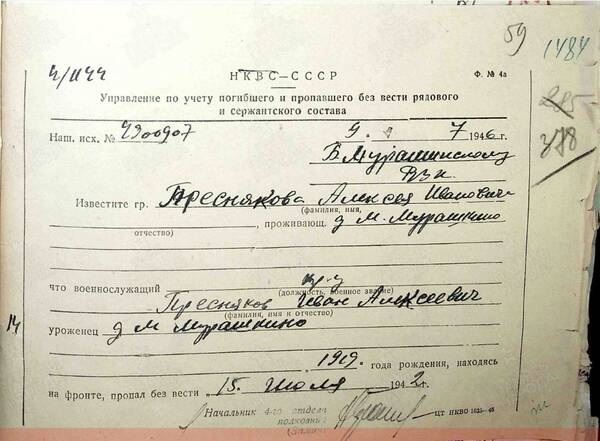 59 1484
4/1144
НКВС—СССР Ф. № 4а
285
378
Управление по учету погибшего и пропавшего без вести рядового
и сержантского состава
Наш. исх. № 4300907 9 7 1946 г.
Б Мурашкинскому
Рвк.
Известите гр. Преснякова Алексея Ивановича
(фамилия, имя,
отчество) , проживающ. д М. Мурашкино
что военнослужащий кр-ц
(должность, военное звание)
Пресняков Иван Алексеевич
(фамилия, имя и отчество)
14
уроженец д М Мурашкино
1919 года рождения, находясь
на фронте, пропал без вести 15 июля 1942 г.
Начальник 4-го отдела
полковник
ЦТ НКВО